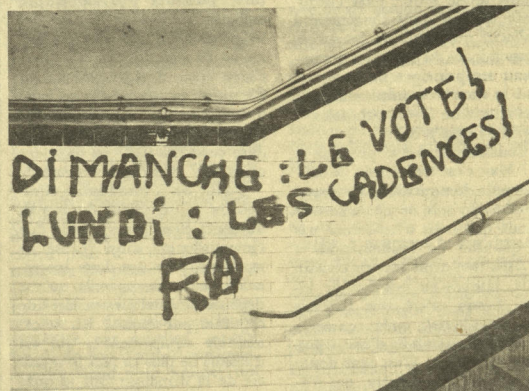 DiMANCHE : LE VOTE!
LUNDi : LES CADENCES!
FA